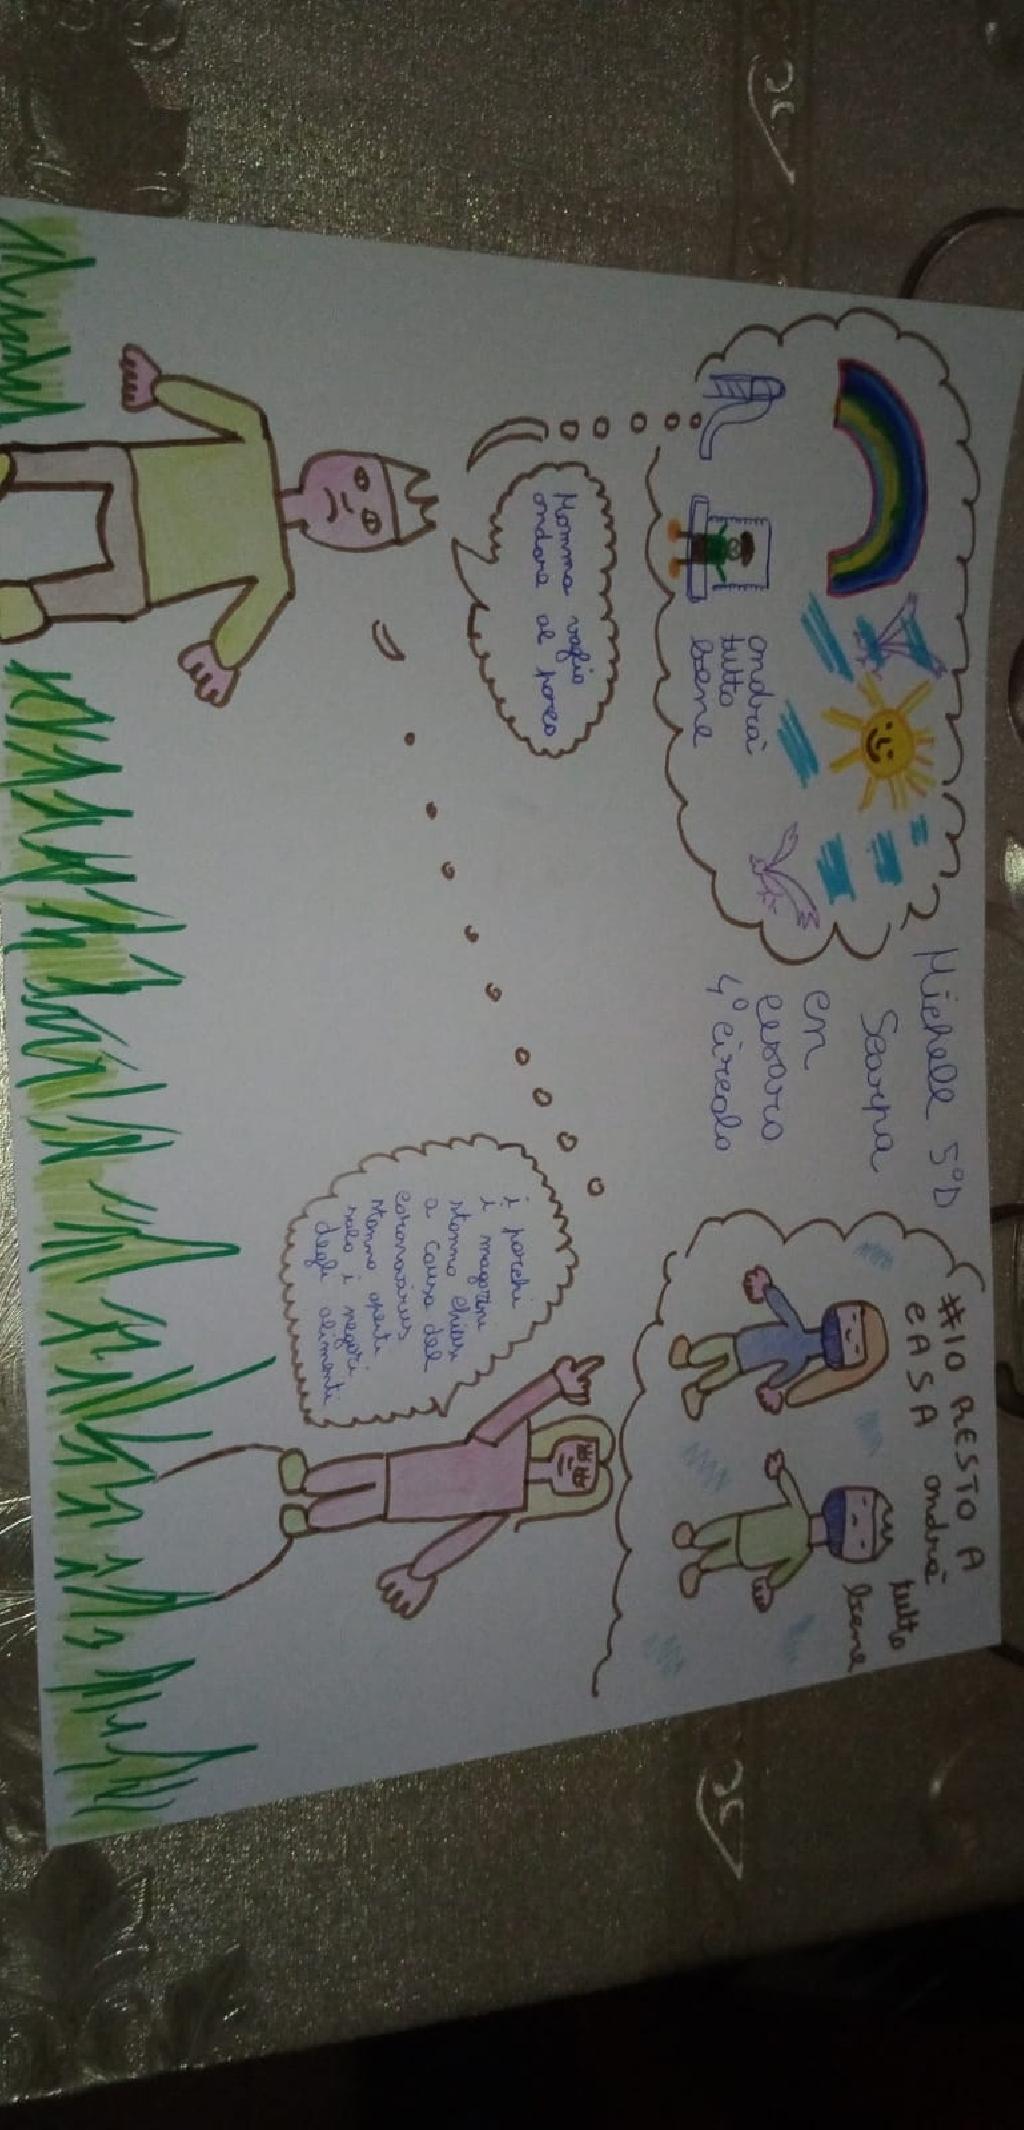 andrà
tutto
bene
Michele 5°D
Scarpa
en
cusaro
4° circolo
#IO RESTO A
CASA andrà
tutto
bene
Mamma voglio
andare al parco
i parchi
i magazini
stanno chiusi
a causa del
coronavirus
stanno aperti
solo i negozi
degli alimenti